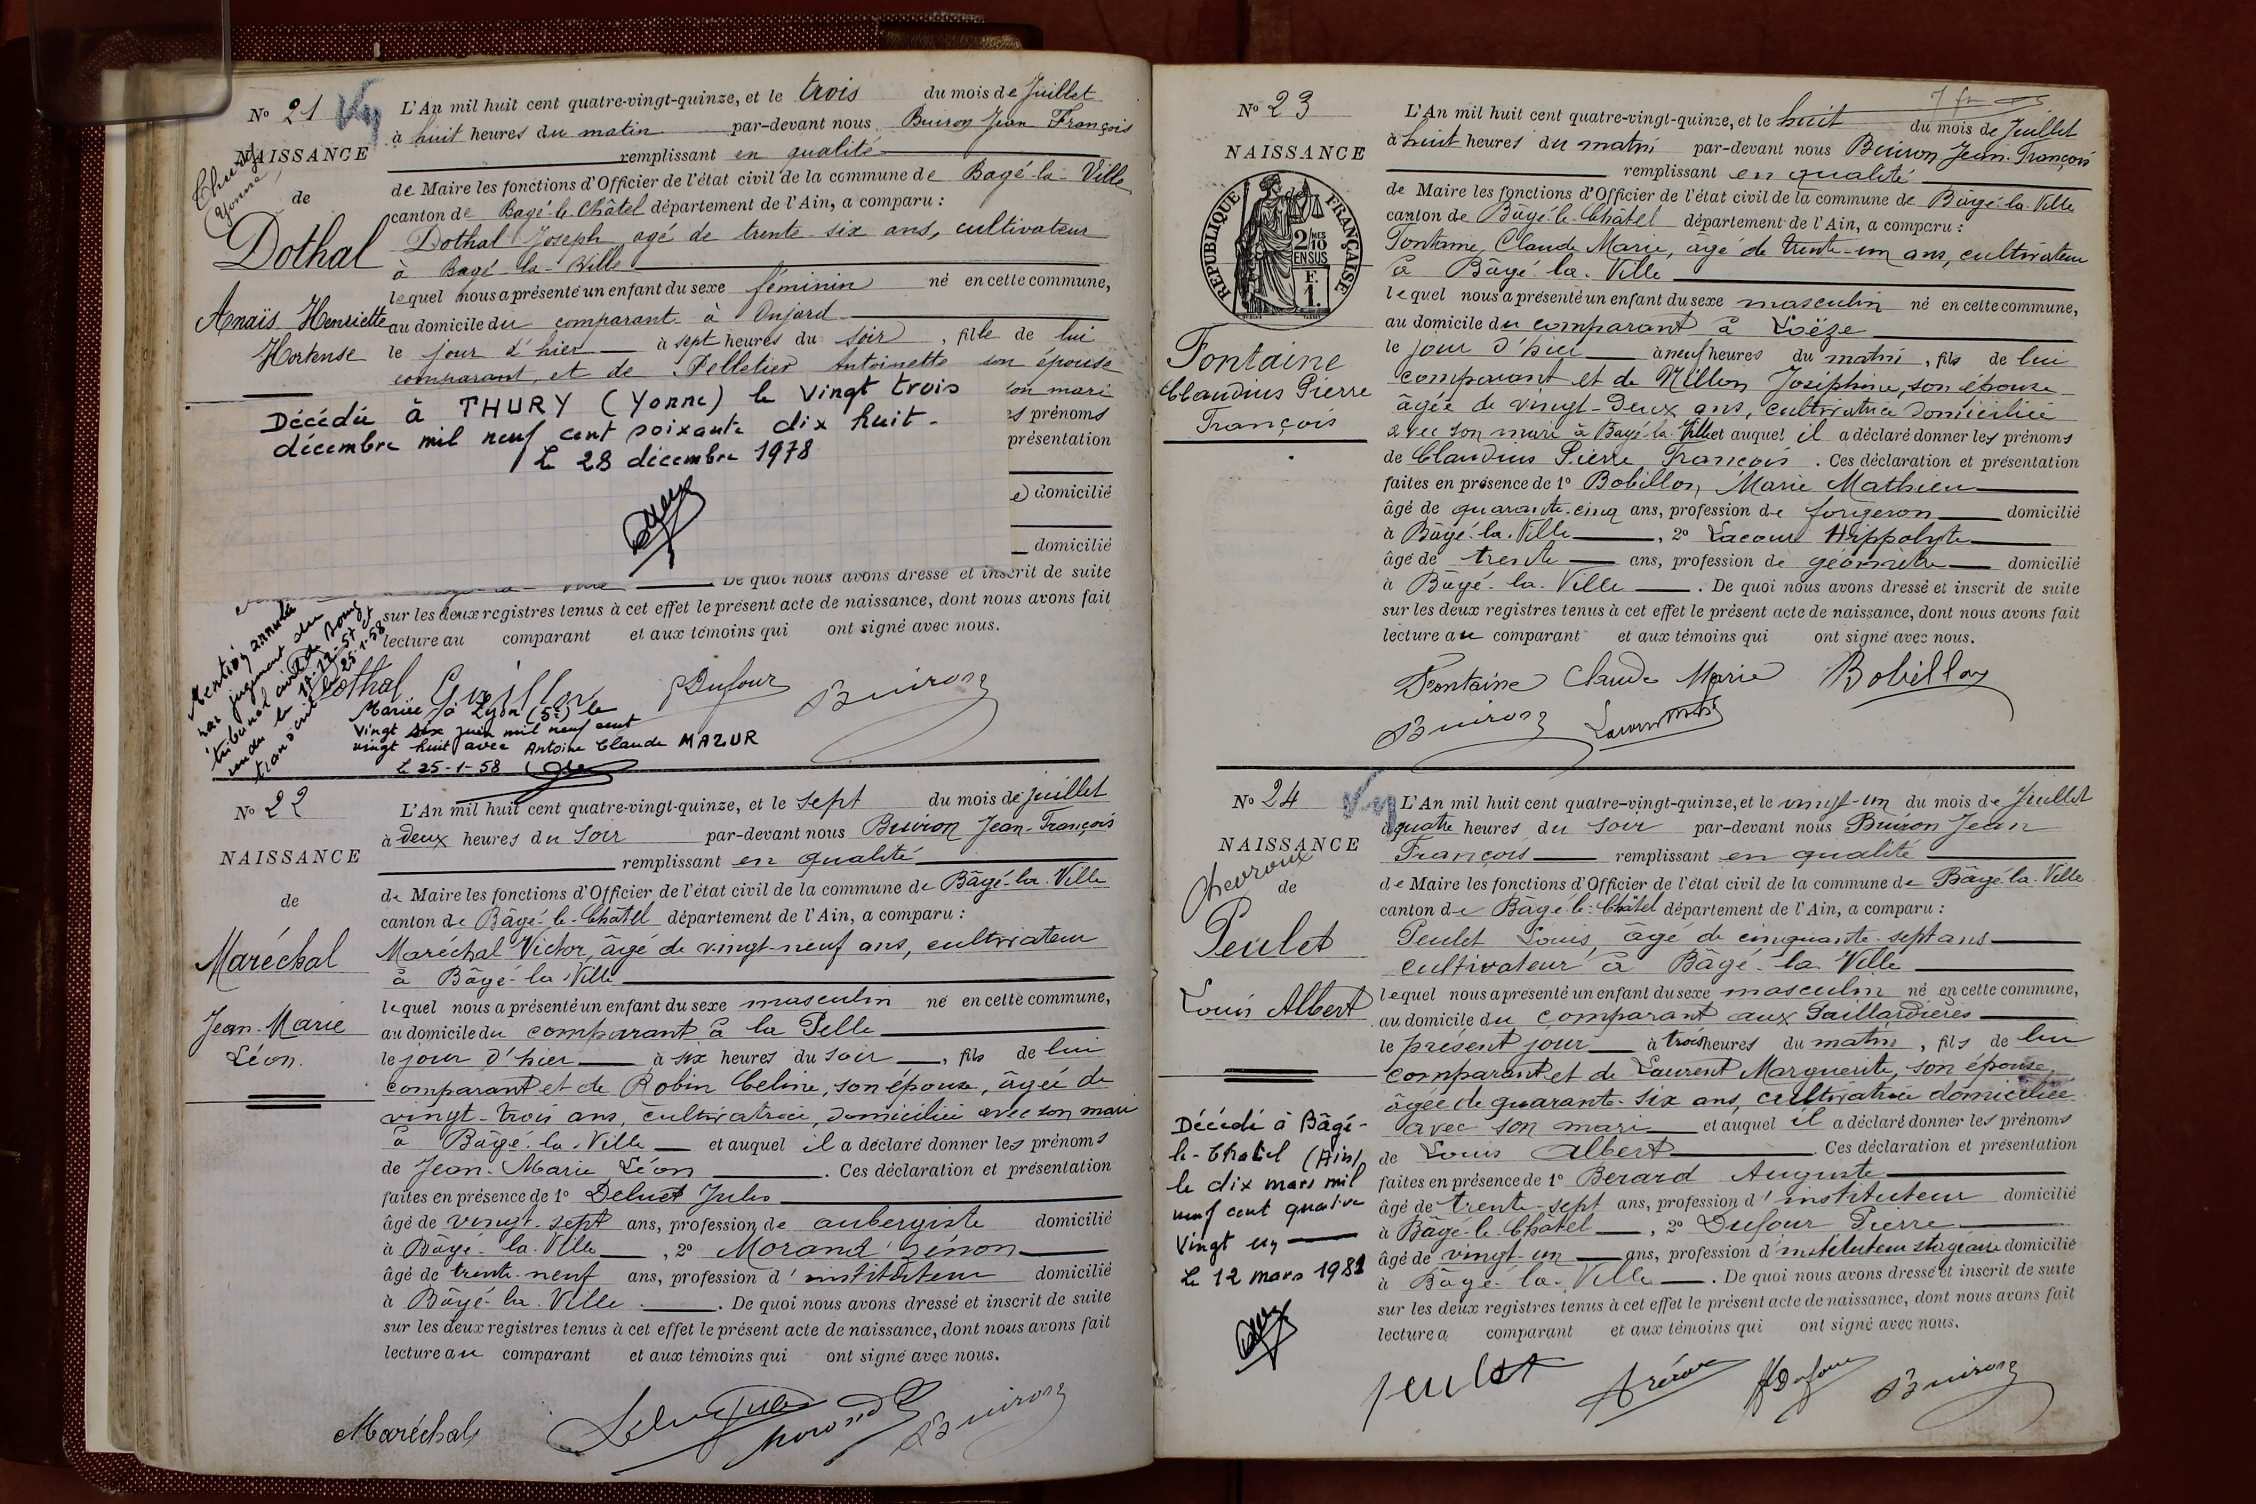 No 21
NAISSANCE
de
Dothal
Anaïs Henriette
Hortense
L'An mil huit cent quatre-vingt-quinze, et le trois du mois de Juillet
à huit heures du matin par-devant nous Buiron Jean François
remplissant en qualité
de Maire les fonctions d'Officier de l'état civil de la commune de Bagé-la-Ville
canton de Bagé-le-Châtel département de l'Ain, a comparu :
Dothal Joseph agé de trente-six ans, cultivateur
à Bagé-la-Ville
lequel nous a présenté un enfant du sexe féminin né en cette commune,
au domicile du comparant à Onjard
le jour d'hier à sept heures du soir, fille de lui
comparant, et de Pelletier Antoinette son épouse
son mari
es prénoms
présentation
Décédée à THURY (Yonne) le vingt trois
décembre mil neuf cent soixante dix huit.
Le 28 décembre 1978
domicilié
domicilié
De quoi nous avons dressé et inscrit de suite
sur les deux registres tenus à cet effet le présent acte de naissance, dont nous avons fait
lecture au comparant et aux témoins qui ont signé avec nous.
Mention annulée
par jugement du
tribunal civil de Bourg
rendu le
transcrit le 25-1-58
Dothal Guillon PDufour Buiron
Mariée à Lyon (5e) le
vingt six juin mil neuf cent
vingt huit avec Antoine Claude MAZUR
Le 25-1-58
No 22
NAISSANCE
de
Maréchal
Jean-Marie
Léon.
L'An mil huit cent quatre-vingt-quinze, et le sept du mois de juillet
à deux heures du soir par-devant nous Buiron Jean-François
remplissant en qualité
de Maire les fonctions d'Officier de l'état civil de la commune de Bâgé-la-Ville
canton de Bâgé-le-Châtel département de l'Ain, a comparu :
Maréchal Victor, âgé de vingt-neuf ans, cultivateur
à Bâgé-la-Ville
lequel nous a présenté un enfant du sexe masculin né en cette commune,
au domicile du comparant à la Pelle
le jour d'hier à six heures du soir, fils de lui
comparant et de Robin Celine, son épouse, âgée de
vingt-trois ans, cultivatrice, domiciliée avec son mari
à Bâgé-la-Ville et auquel il a déclaré donner les prénoms
de Jean-Marie Léon. Ces déclaration et présentation
faites en présence de 1o Deluet Jules
âgé de vingt-sept ans, profession de aubergiste domicilié
à Bâgé-la-Ville, 2o Morand Zénon
âgé de trente-neuf ans, profession d'instituteur domicilié
à Bâgé-la-Ville. De quoi nous avons dressé et inscrit de suite
sur les deux registres tenus à cet effet le présent acte de naissance, dont nous avons fait
lecture au comparant et aux témoins qui ont signé avec nous.
Maréchal Buiron
No 23
NAISSANCE
RÉPUBLIQUE FRANÇAISE
2/10 MES
EN SUS
F.
1.
Fontaine
Claudius Pierre
François
L'An mil huit cent quatre-vingt-quinze, et le huit du mois de Juillet
à huit heures du matin par-devant nous Buiron Jean-François
remplissant en qualité
de Maire les fonctions d'Officier de l'état civil de la commune de Bâgé-la-Ville
canton de Bâgé-le-Châtel département de l'Ain, a comparu :
Fontaine, Claude Marie, âgé de trente-un ans, cultivateur
à Bâgé-la-Ville
lequel nous a présenté un enfant du sexe masculin né en cette commune,
au domicile du comparant à Loëze
le jour d'hier à neuf heures du matin, fils de lui
comparant et de Millon Joséphine, son épouse
âgée de vingt-deux ans, cultivatrice domiciliée
avec son mari à Bagé-la-Ville et auquel il a déclaré donner les prénoms
de Claudius Pierre François. Ces déclaration et présentation
faites en présence de 1o Bobillon, Marie Mathieu
âgé de quarante-cinq ans, profession de forgeron domicilié
à Bâgé-la-Ville, 2o Lacour Hippolyte
âgé de trente ans, profession de géomètre domicilié
à Bâgé-la-Ville. De quoi nous avons dressé et inscrit de suite
sur les deux registres tenus à cet effet le présent acte de naissance, dont nous avons fait
lecture au comparant et aux témoins qui ont signé avec nous.
Fontaine Claude Marie Bobillon
Buiron
No 24
NAISSANCE
Chevroux
de
Peulet
Louis Albert
Décédé à Bâgé-
le-Chatel (Ain)
le dix mars mil
neuf cent quatre
vingt un
Le 12 mars 1981
L'An mil huit cent quatre-vingt-quinze, et le vingt-un du mois de Juillet
à quatre heures du soir par-devant nous Buiron Jean
François remplissant en qualité
de Maire les fonctions d'Officier de l'état civil de la commune de Bâgé-la-Ville
canton de Bâgé-le-Châtel département de l'Ain, a comparu :
Peulet Louis, âgé de cinquante-sept ans
cultivateur à Bâgé-la-Ville
lequel nous a présenté un enfant du sexe masculin né en cette commune,
au domicile du comparant aux Gaillardières
le présent jour à trois heures du matin, fils de lui
comparant et de Laurent Marguerite, son épouse,
âgée de quarante-six ans, cultivatrice domiciliée
avec son mari et auquel il a déclaré donner les prénoms
de Louis Albert. Ces déclaration et présentation
faites en présence de 1o Berard Auguste
âgé de trente-sept ans, profession d'instituteur domicilié
à Bâgé-le-Châtel, 2o Dufour Pierre
âgé de vingt-un ans, profession d'instituteur stagiaire domicilié
à Bâgé-la-Ville. De quoi nous avons dressé et inscrit de suite
sur les deux registres tenus à cet effet le présent acte de naissance, dont nous avons fait
lecture a comparant et aux témoins qui ont signé avec nous.
Peulet Buiron